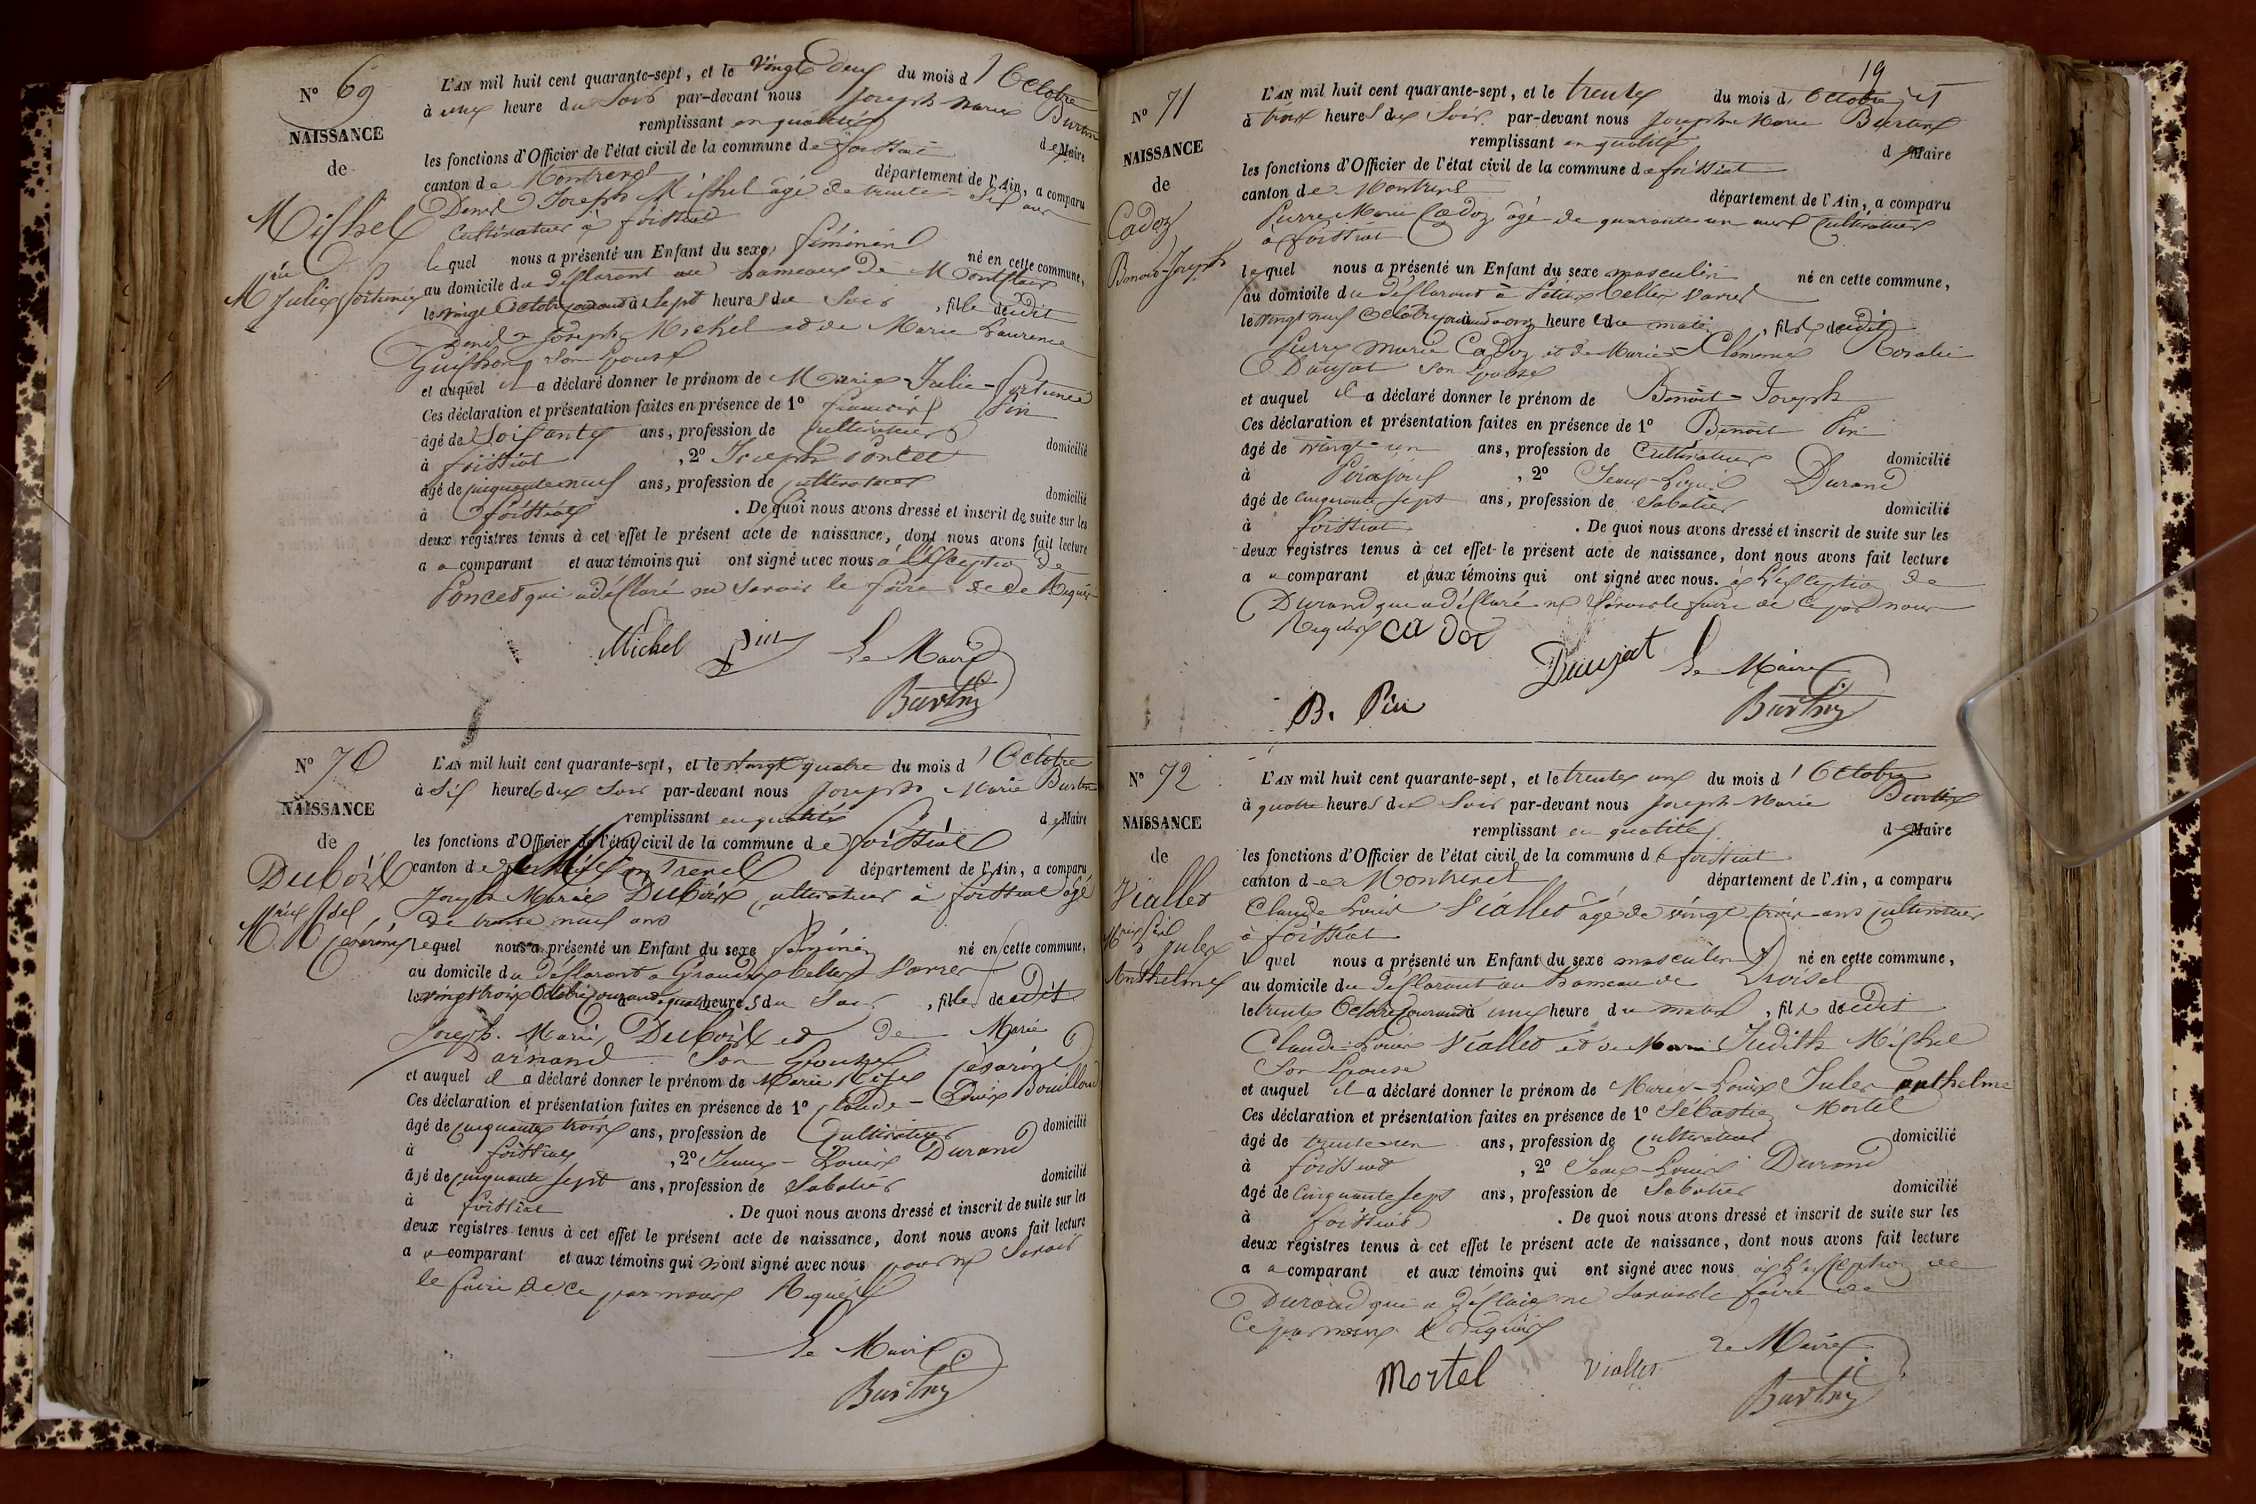 N° 69
NAISSANCE
de
Michel
Mrie Julie fortunée
L'AN mil huit cent quarante-sept, et le vingt deux du mois d'Octobre
à une heure du Soir par-devant nous Joseph Marie Burtin
remplissant en qualité de Maire
les fonctions d'Officier de l'état civil de la commune de foissiat
canton de Montrevel département de l'Ain, a comparu
Denis Joseph Michel âgé de trente-six ans
Cultivateur à foissiat
lequel nous a présenté un Enfant du sexe féminin né en cette commune,
au domicile du déclarant au hameau de
le vingt Octobre courant à sept heures du Soir, fille dudit
Denis Joseph Michel et de Marie Laurence
son épouse
et auquel il a déclaré donner le prénom de Marie-Julie-fortunée
Ces déclaration et présentation faites en présence de 1° françois Pin
âgé de Soixante ans, profession de cultivateur domicilié
à foissiat, 2° Joseph Poncet
âgé de cinquante neuf ans, profession de cultivateur domicilié
à foissiat. De quoi nous avons dressé et inscrit de suite sur les
deux registres tenus à cet effet le présent acte de naissance, dont nous avons fait lecture
a u comparant et aux témoins qui ont signé avec nous à l'exception de
Poncet qui a déclaré ne savoir le faire de ce Requis
Michel Pin Le Maire
Burtin
N° 70
NAISSANCE
de
Dubois
Mrie Césarine
L'AN mil huit cent quarante-sept, et le vingt quatre du mois d'Octobre
à Six heures du Soir par-devant nous Joseph Marie Burtin
remplissant en qualité de Maire
les fonctions d'Officier de l'état civil de la commune de foissiat
canton de Montrevel département de l'Ain, a comparu
Joseph Marie Dubois cultivateur à foissiat âgé
de trente neuf ans
lequel nous a présenté un Enfant du sexe féminin né en cette commune,
au domicile du déclarant à Grande Celles
le vingt trois Octobre courant à quatre heures du Soir, fille dudit
Joseph Marie Dubois et de Marie
Darnand Son Epouse
et auquel il a déclaré donner le prénom de Marie Césarine
Ces déclaration et présentation faites en présence de 1° Claude-Louis Bouilloud
âgé de cinquante trois ans, profession de Cultivateur domicilié
à foissiat, 2° Jean-Louis Durand
âgé de cinquante sept ans, profession de Sabotier domicilié
à foissiat. De quoi nous avons dressé et inscrit de suite sur les
deux registres tenus à cet effet le présent acte de naissance, dont nous avons fait lecture
a u comparant et aux témoins qui n'ont signé avec nous pour ne Savoir
le faire de ce par nous Requis
Le Maire
Burtin
19
N° 71
NAISSANCE
de
Cadoz
Benoit-Joseph
L'AN mil huit cent quarante-sept, et le trente du mois d'Octobre
à trois heures du Soir par-devant nous Joseph Marie Burtin
remplissant en qualité de Maire
les fonctions d'Officier de l'état civil de la commune de foissiat
canton de Montrevel département de l'Ain, a comparu
Pierre Marie Cadoz âgé de quarante un ans Cultivateur
à foissiat
lequel nous a présenté un Enfant du sexe masculin né en cette commune,
au domicile du déclarant à Petite Celles
le vingt neuf Octobre courant à onze heures du matin, fils dudit
Pierre Marie Cadoz et de Marie-Clémence Rosalie
Daujat son épouse
et auquel il a déclaré donner le prénom de Benoit-Joseph
Ces déclaration et présentation faites en présence de 1° Benoit Pin
âgé de vingt-un ans, profession de Cultivateur domicilié
à, 2° Jean-Louis Durand
âgé de cinquante sept ans, profession de Sabotier domicilié
à foissiat. De quoi nous avons dressé et inscrit de suite sur les
deux registres tenus à cet effet le présent acte de naissance, dont nous avons fait lecture
a u comparant et aux témoins qui ont signé avec nous. à l'exception de
Durand qui a déclaré ne Savoir le faire de ce par nous
Requis Cadoz
Daujat Le Maire
B. Pin Burtin
N° 72
NAISSANCE
de
Viallet
Jules
Anthelme
L'AN mil huit cent quarante-sept, et le trente un du mois d'Octobre
à quatre heures du Soir par-devant nous Joseph Marie Burtin
remplissant en qualité de Maire
les fonctions d'Officier de l'état civil de la commune de foissiat
canton de Montrevel département de l'Ain, a comparu
Claude Louis Viallet âgé de vingt trois ans cultivateur
à foissiat
lequel nous a présenté un Enfant du sexe masculin né en cette commune,
au domicile du déclarant au hameau de
le trente Octobre courant à une heure du matin, fils dudit
Claude Louis Viallet et de Marie Judith Michel
Son Epouse
et auquel il a déclaré donner le prénom de Marie-Louis Jules anthelme
Ces déclaration et présentation faites en présence de 1° Sébastien Mortel
âgé de trente-un ans, profession de cultivateur domicilié
à foissiat, 2° Jean-Louis Durand
âgé de cinquante sept ans, profession de Sabotier domicilié
à foissiat. De quoi nous avons dressé et inscrit de suite sur les
deux registres tenus à cet effet le présent acte de naissance, dont nous avons fait lecture
a u comparant et aux témoins qui ont signé avec nous à l'exception de
Durand qui a déclaré ne Savoir le faire de
ce par nous requis
Le Maire
Mortel Viallet
Burtin